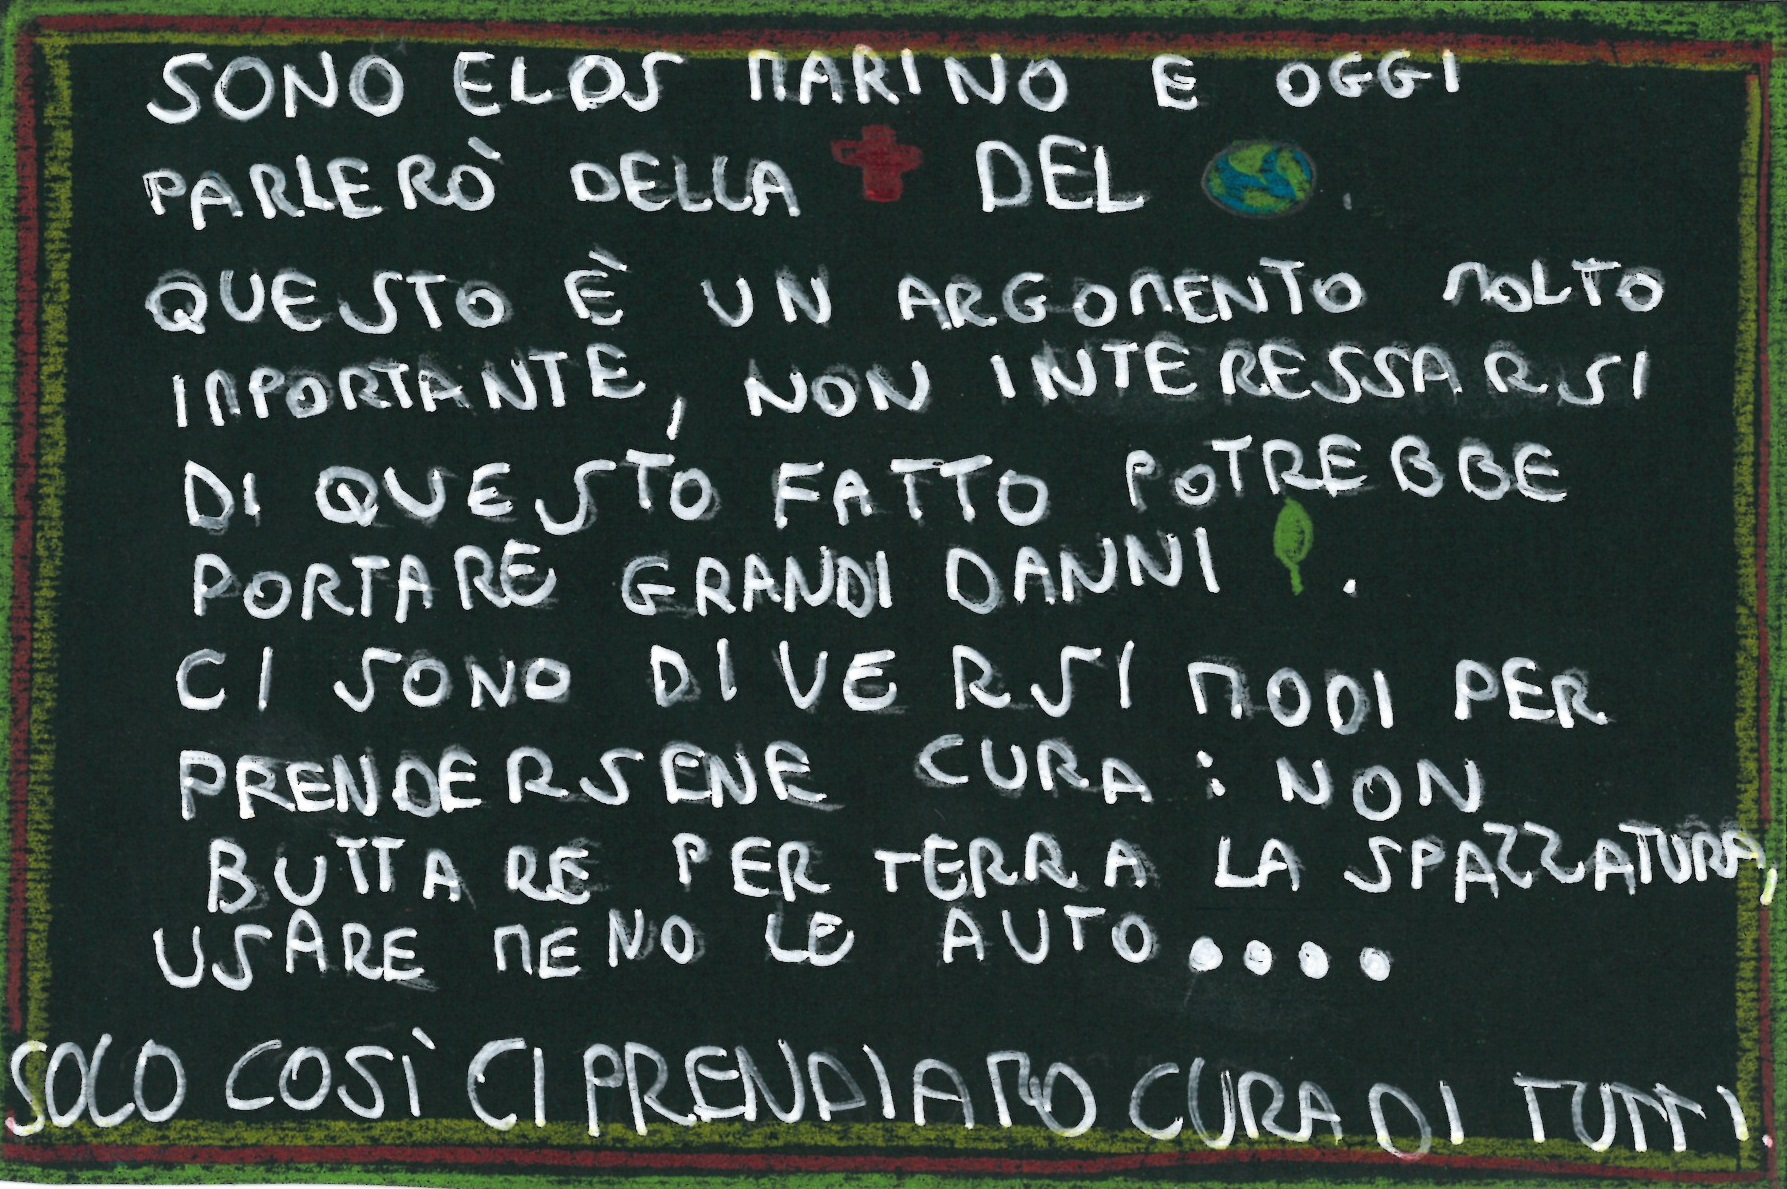 SONO ELOS MARINO E OGGI
PARLERÒ DELLA DEL .
QUESTO È UN ARGOMENTO MOLTO
IMPORTANTE, NON INTERESSARSI
DI QUESTO FATTO POTREBBE
PORTARE GRANDI DANNI .
CI SONO DIVERSI MODI PER
PRENDERSENE CURA: NON
BUTTARE PER TERRA LA SPAZZATURA,
USARE MENO LE AUTO....
SOLO COSÌ CI PRENDIAMO CURA DI TUTTI.